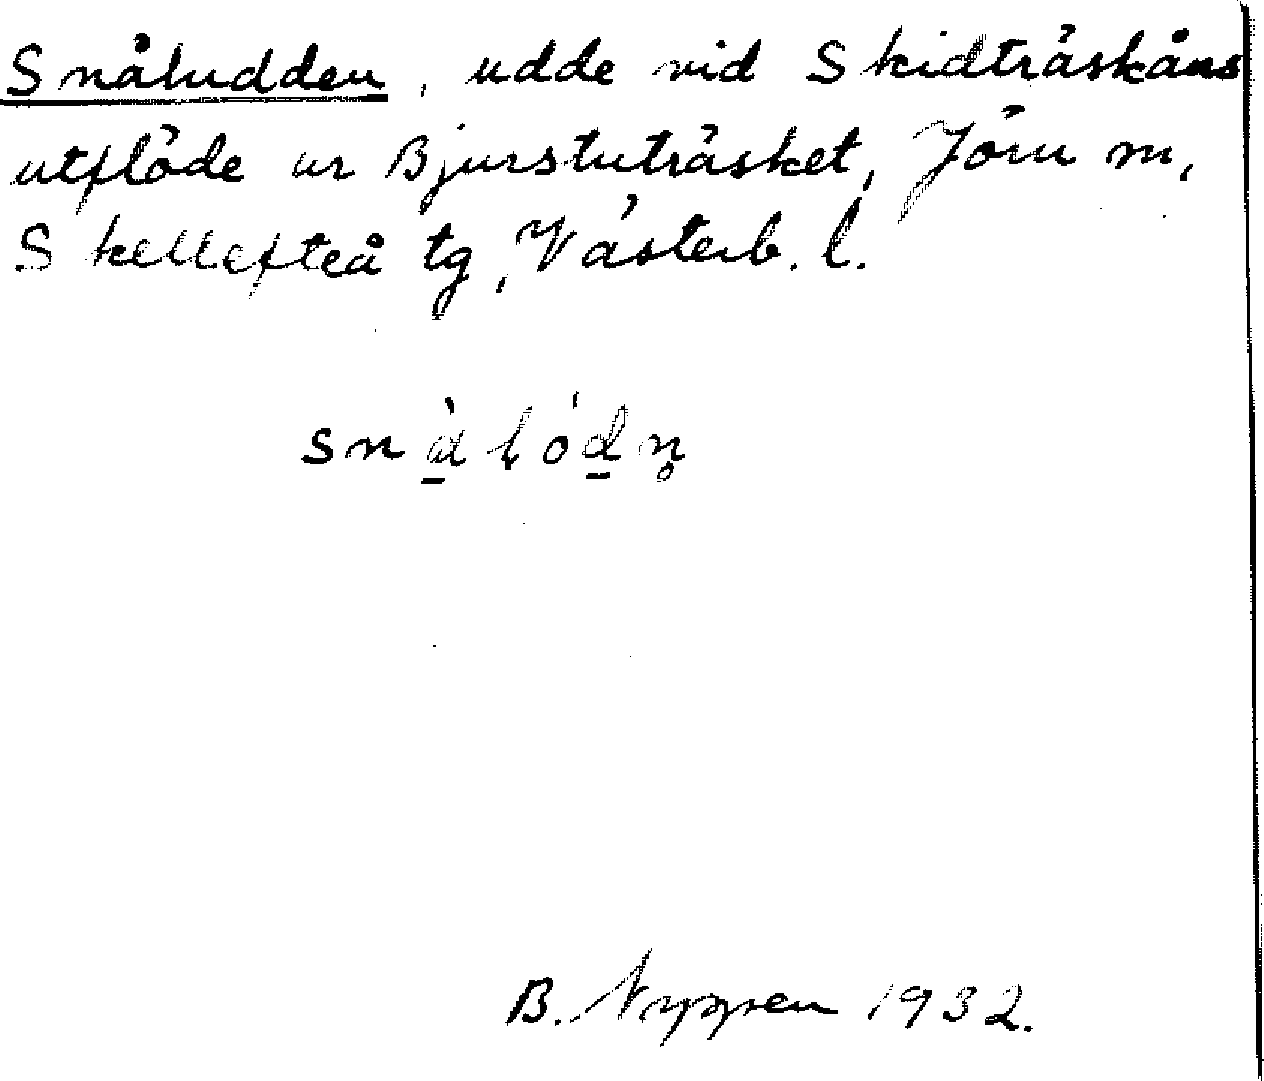 Snåludden, udde vid Skidträskåns
utflöde ur Bjurstuträsket, Jörn m,
Skellefteå tg, Västerb. l.
snɑ̱̀ɽóḏn̥
B. 1932.